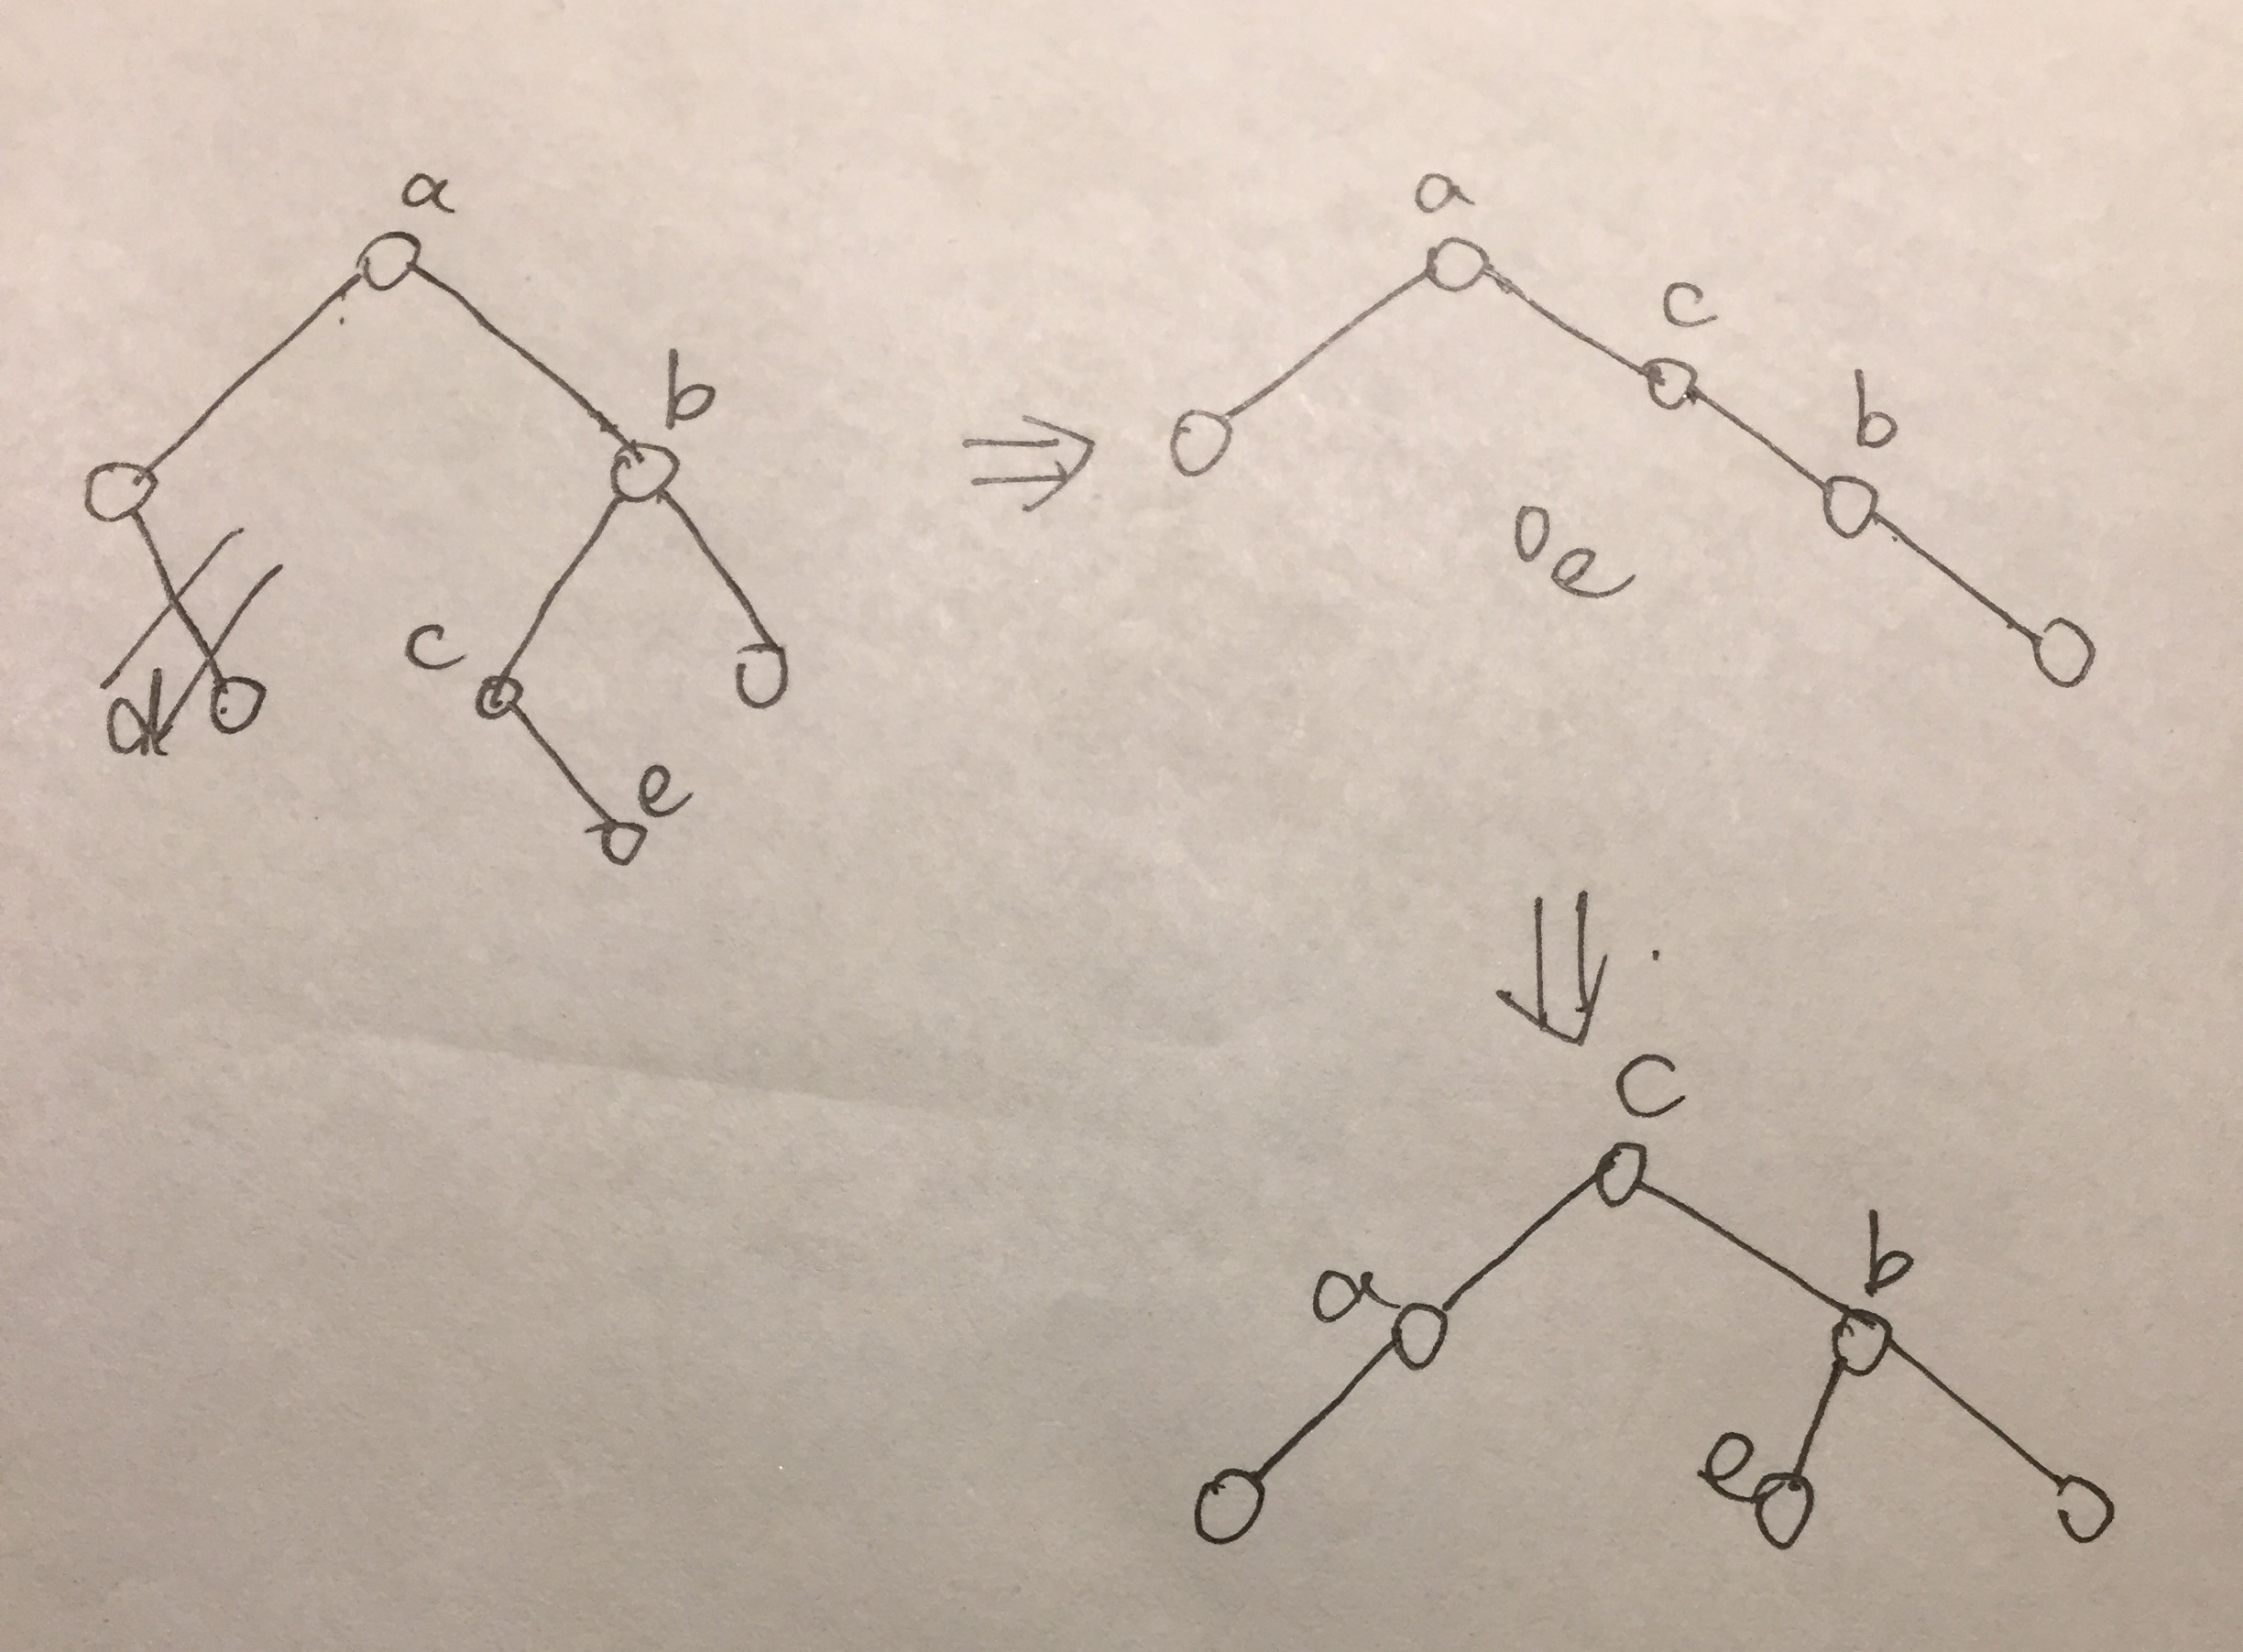 a
b
c
d
e
a
c
b
e
c
a
b
e